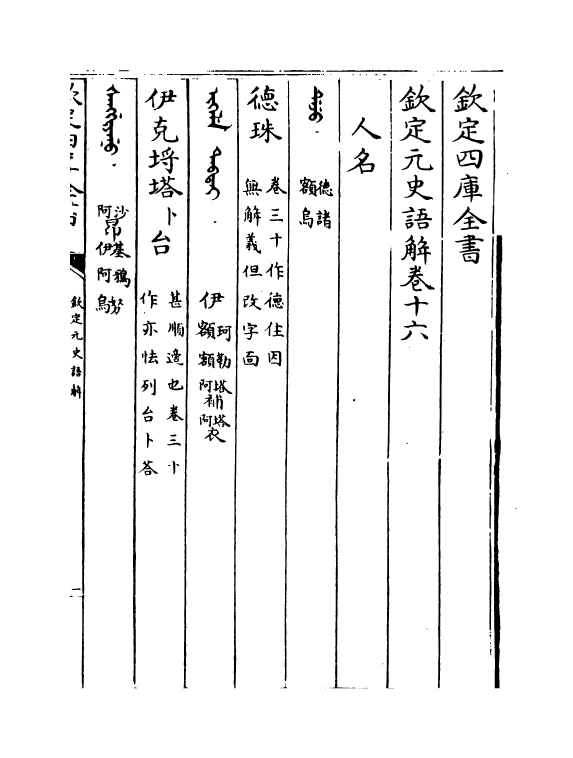 欽定四庫全書
欽定元史語解卷十六
人名
德諸
額烏
德珠
卷三十作德住因
無解義但改字面
伊 珂額 勒額 塔阿 補 塔阿 衣
伊克埒塔卜台
甚順邊也卷三十
作亦怯列台卜荅
沙阿 昂 基伊 鴉阿 努烏
欽定四庫全書
欽定元史語解
一